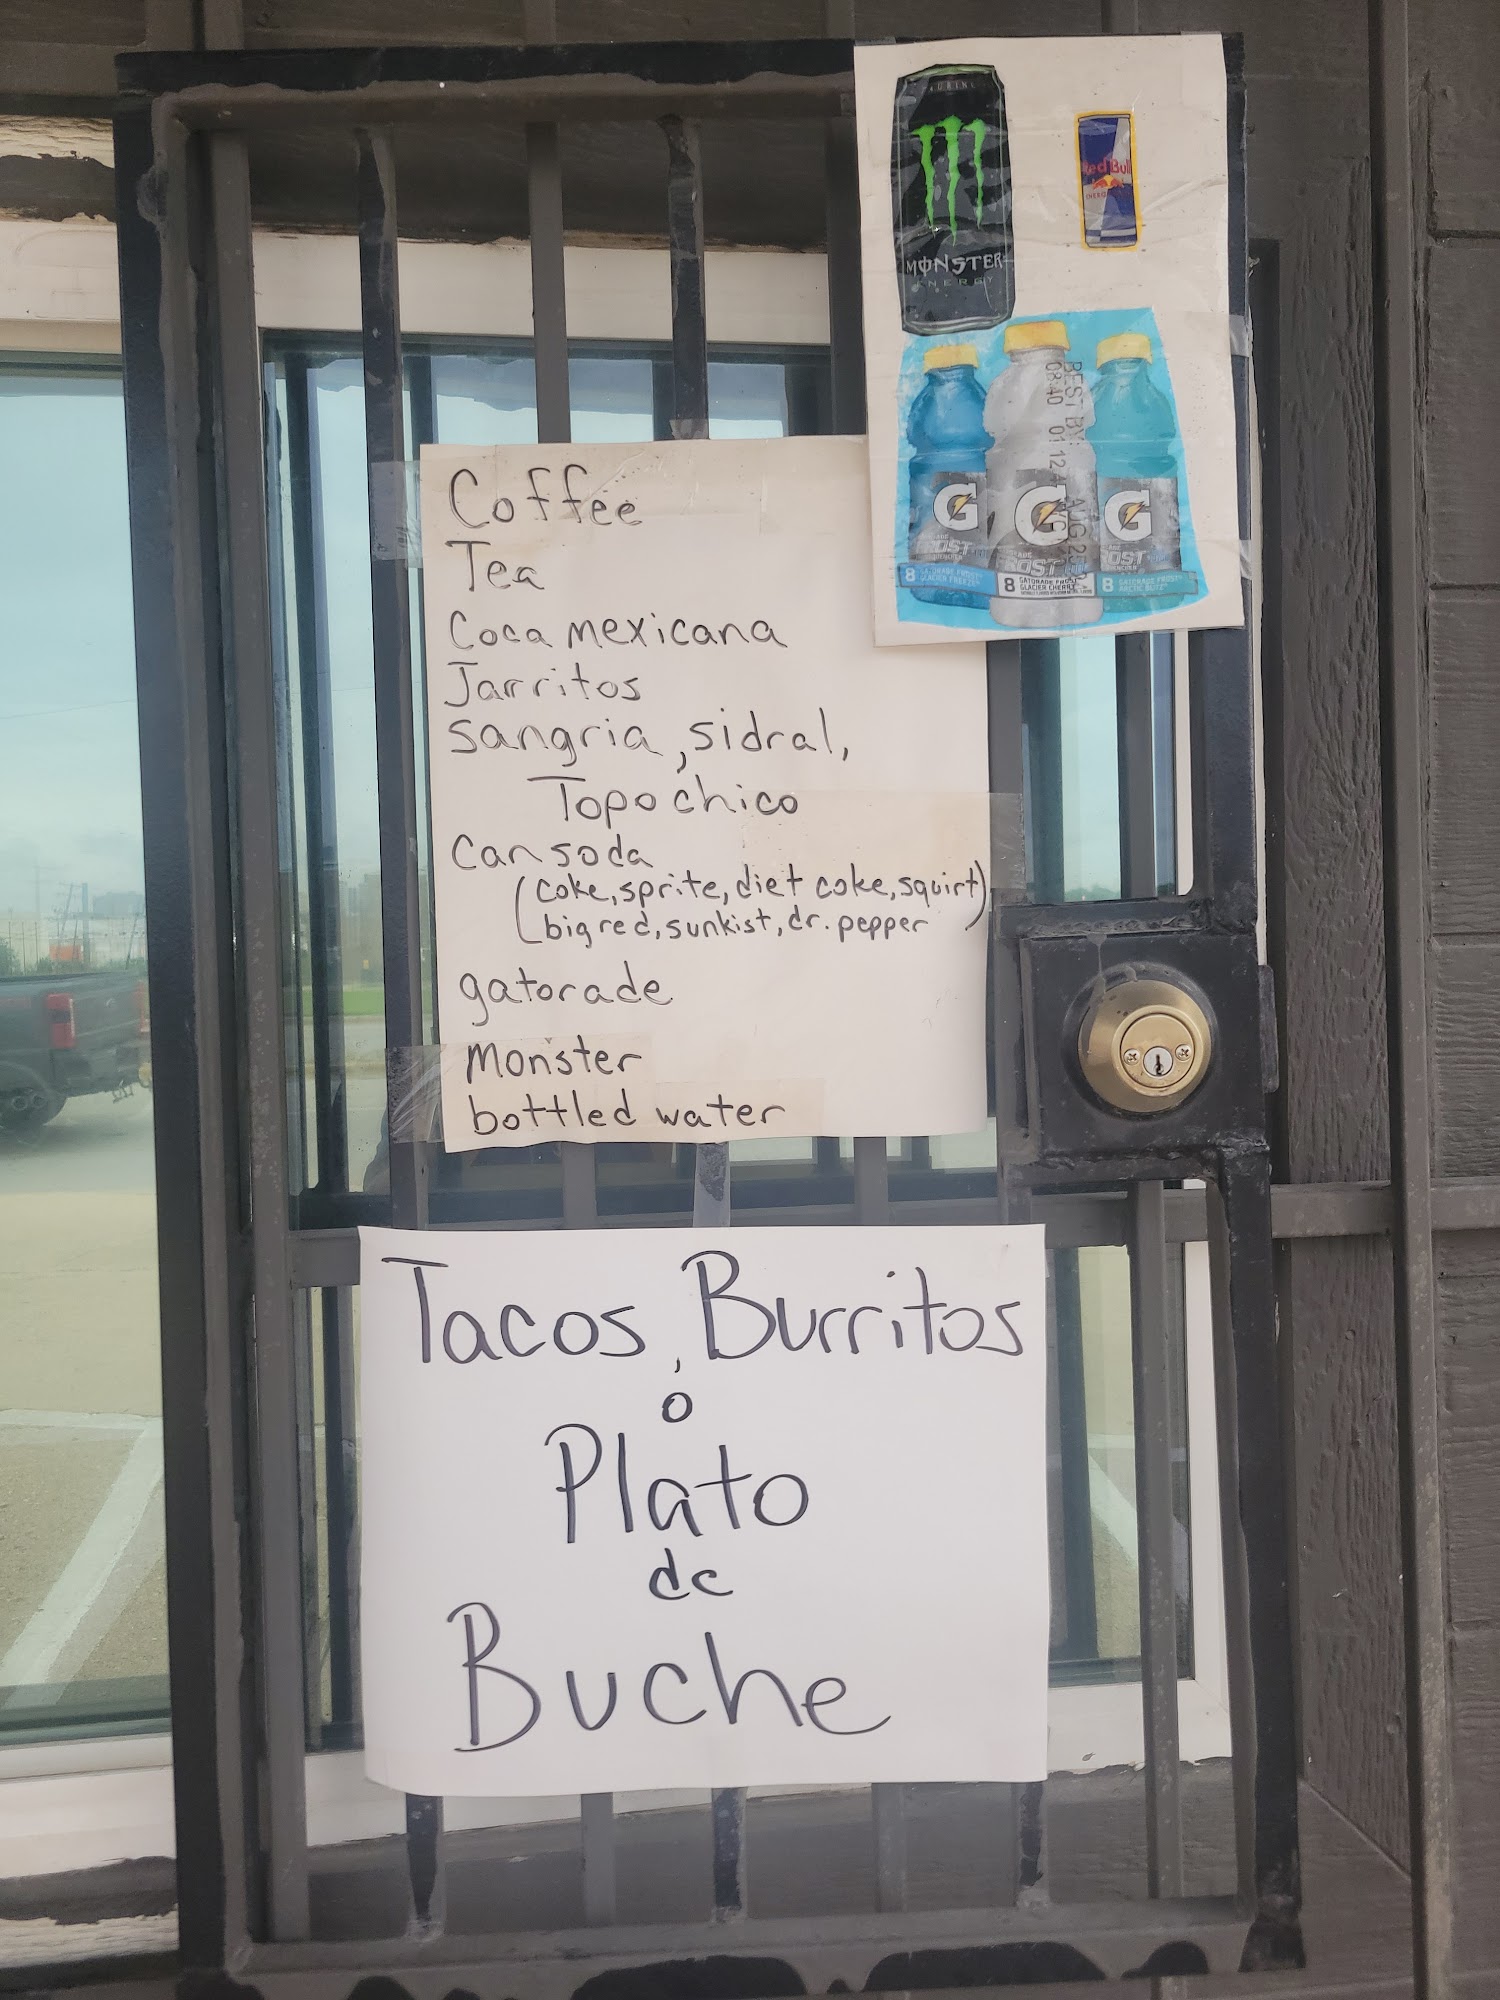 MONSTER
ENERGY
Red Bull
ENERGY
BEST BY
08:40 01 12
G G G
FROST
8 GATORADE FROST GLACIER FREEZE
8 GATORADE FROST GLACIER CHERRY
8 GATORADE FROST ARCTIC BLITZ
Coffee
Tea
Coca mexicana
Jarritos
sangria, sidral,
Topo chico
Can soda
(coke, sprite, diet coke, squirt)
big red, sunkist, dr. pepper
gatorade
monster
bottled water
Tacos, Burritos
o
Plato
de
Buche